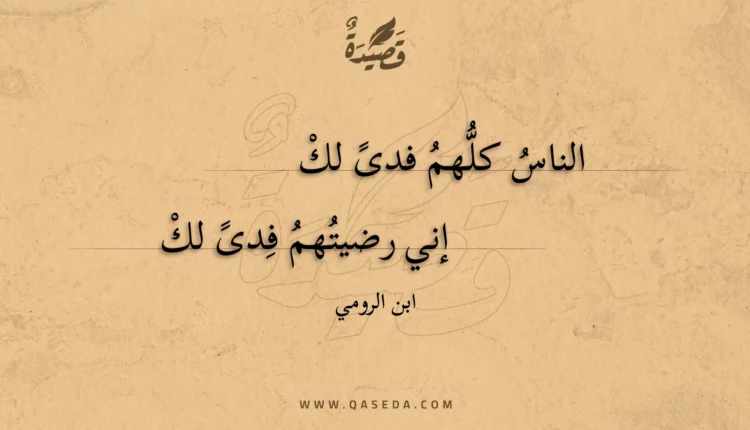 قَصِيْدَةٌ
الناسُ كلُّهمُ فدىً لكْ
إني رضيتُهمُ فِدىً لكْ
ابن الرومي
WWW.QASEDA.COM